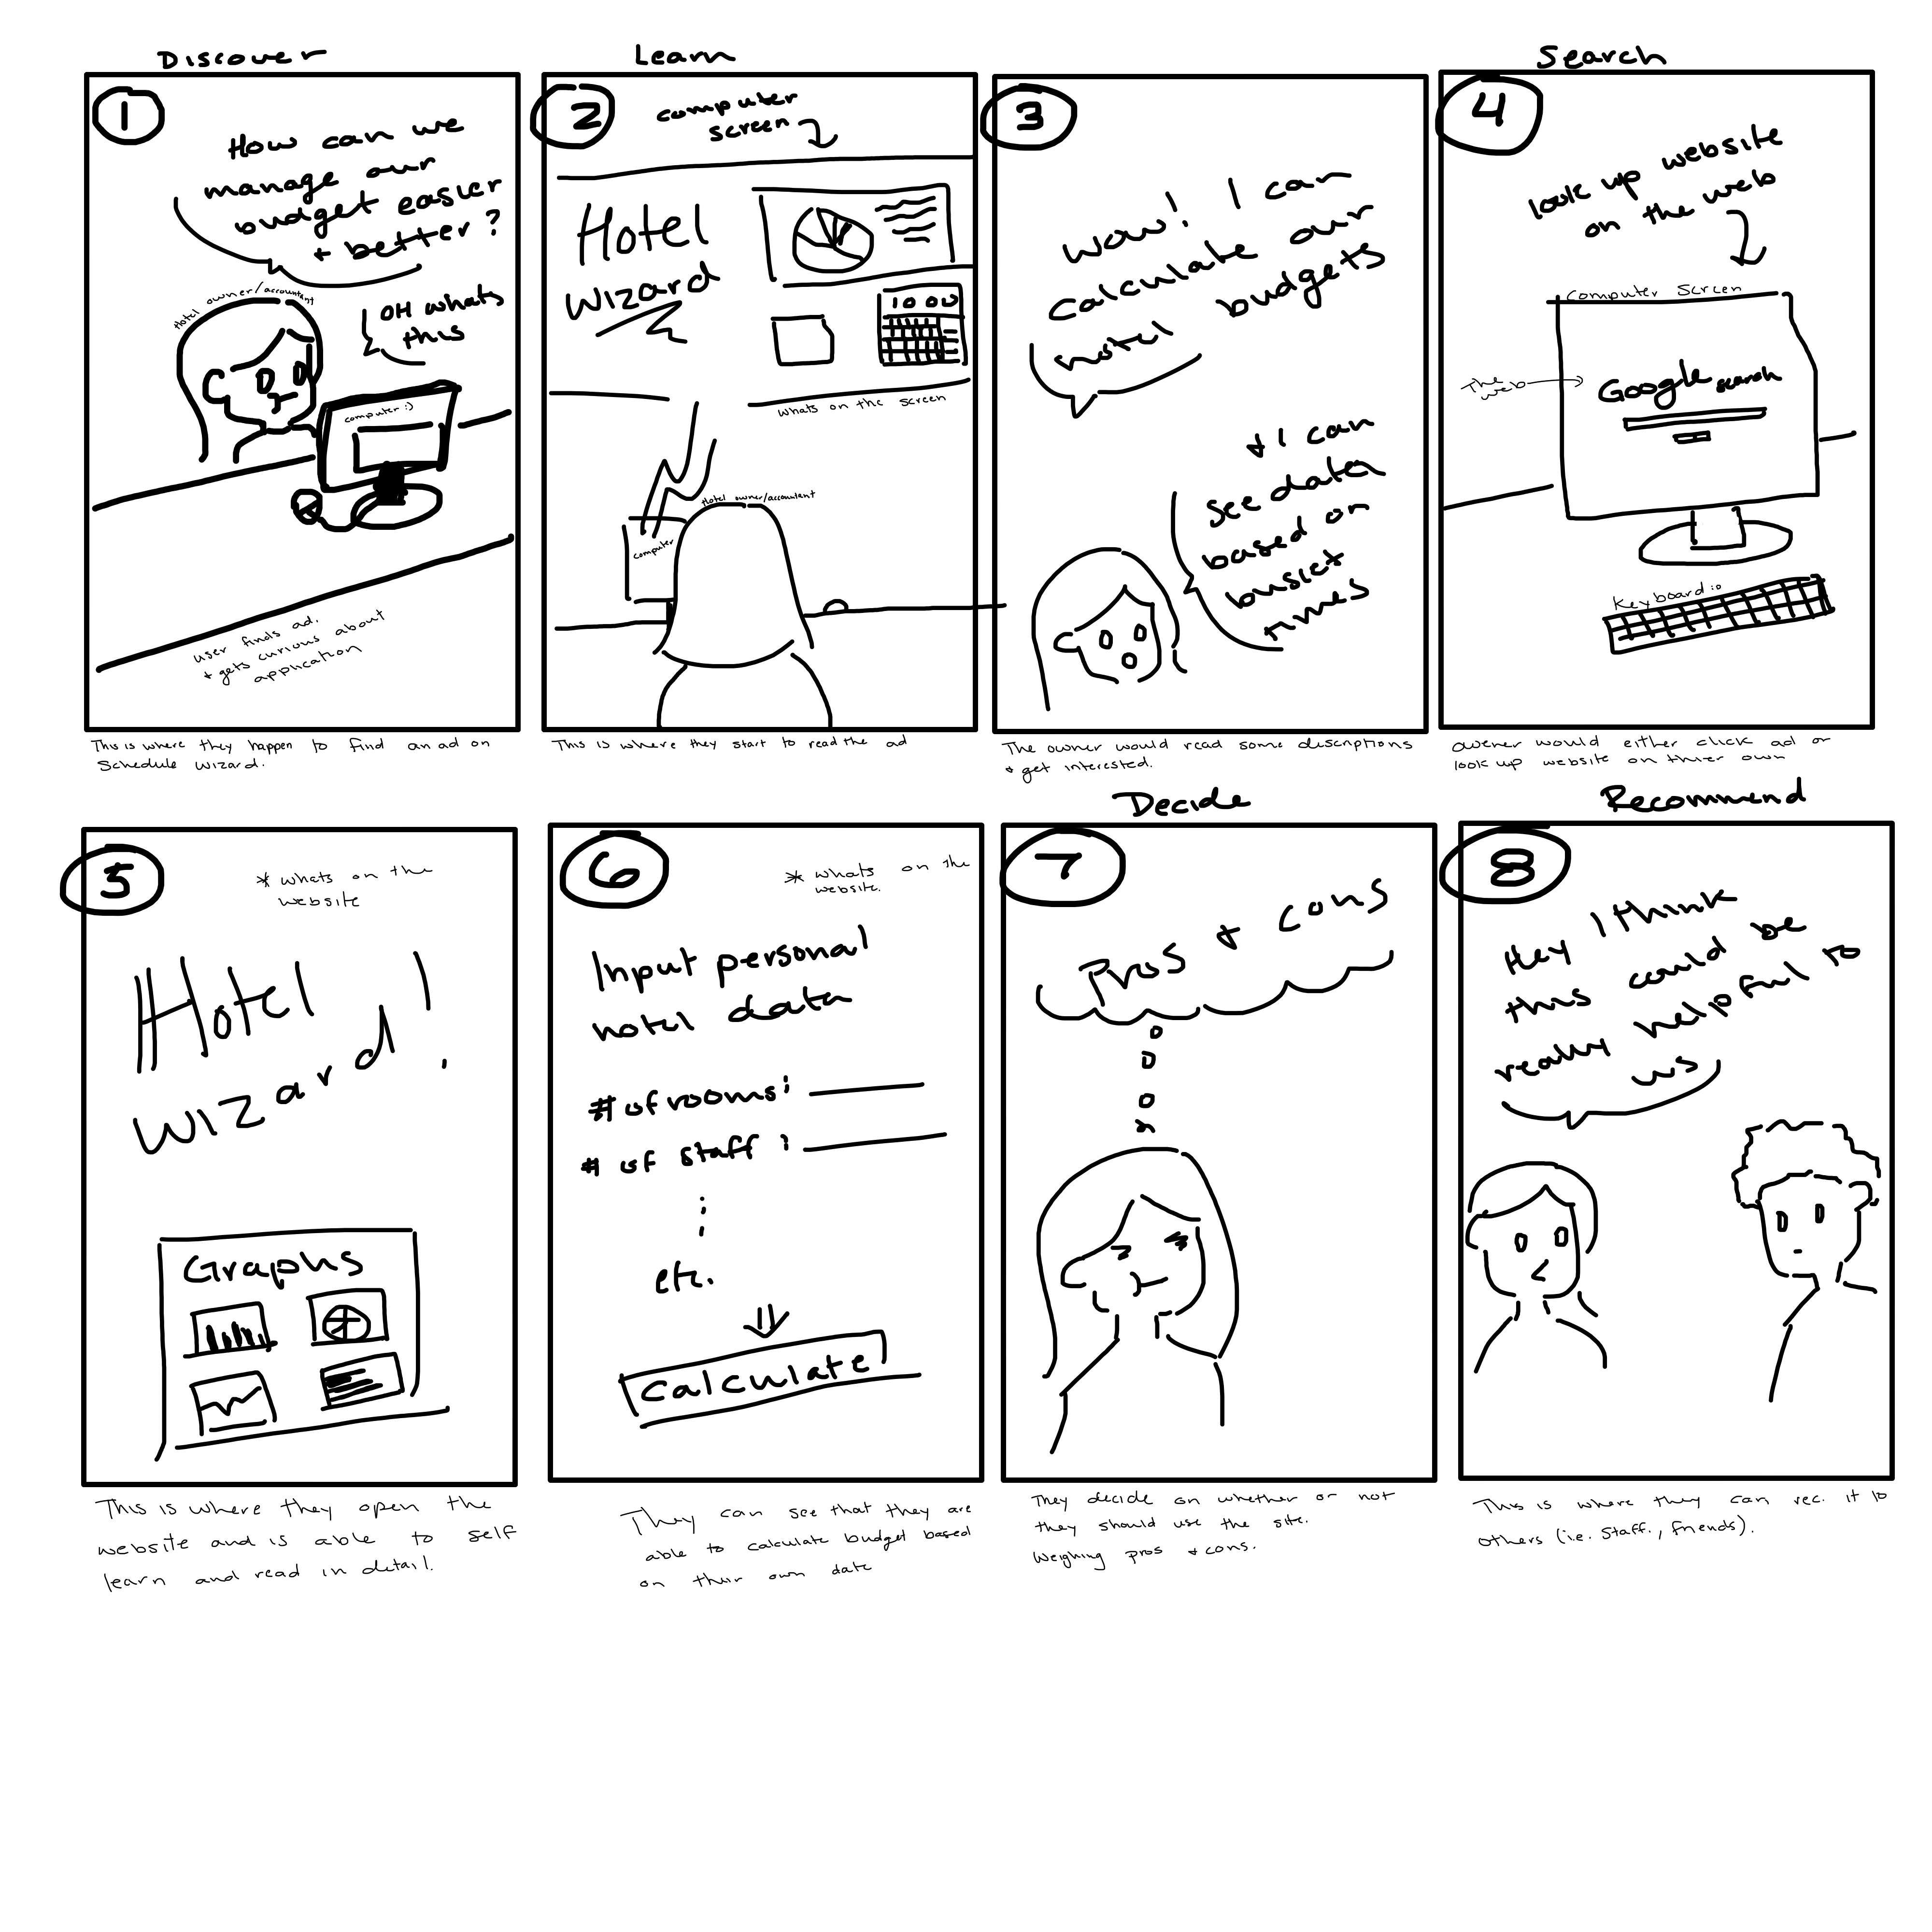 Discover
1
How can we
manage our
budget easier
+ better?
Hotel owner/accountant
OH whats
this
computer :)
user finds ad.
+ gets curious about
application
This is where they happen to find an ad on
Schedule Wizard.
Learn
2
computer
screen
Hotel
Wizard
1000
whats on the screen
Hotel owner/accountant
computer
This is where they start to read the ad
3
Wow! I can
calculate our
hotel budgets
+ I can
see data
based on
busiest
times
The owner would read some descriptions
+ get interested.
Search
4
look up website
on the web
Computer Screen
The
web
Google search
Keyboard :o
owener would either click ad or
look up website on thier own
5
* whats on the
website
Hotel
Wizard!
Graphs
This is where they open the
website and is able to self
learn and read in detail.
6
* whats on the
website.
Input personal
hotel data
# of rooms:
# of staff:
etc.
Calculate
They can see that they are
able to calculate budget based
on their own date
Decide
7
Pros + cons
They decide on whether or not
they should use the site.
Weighing pros + cons.
Recommend
8
Hey I think
this could be
really helpful to
us
This is where they can rec. it to
others (i.e. Staff., friends).